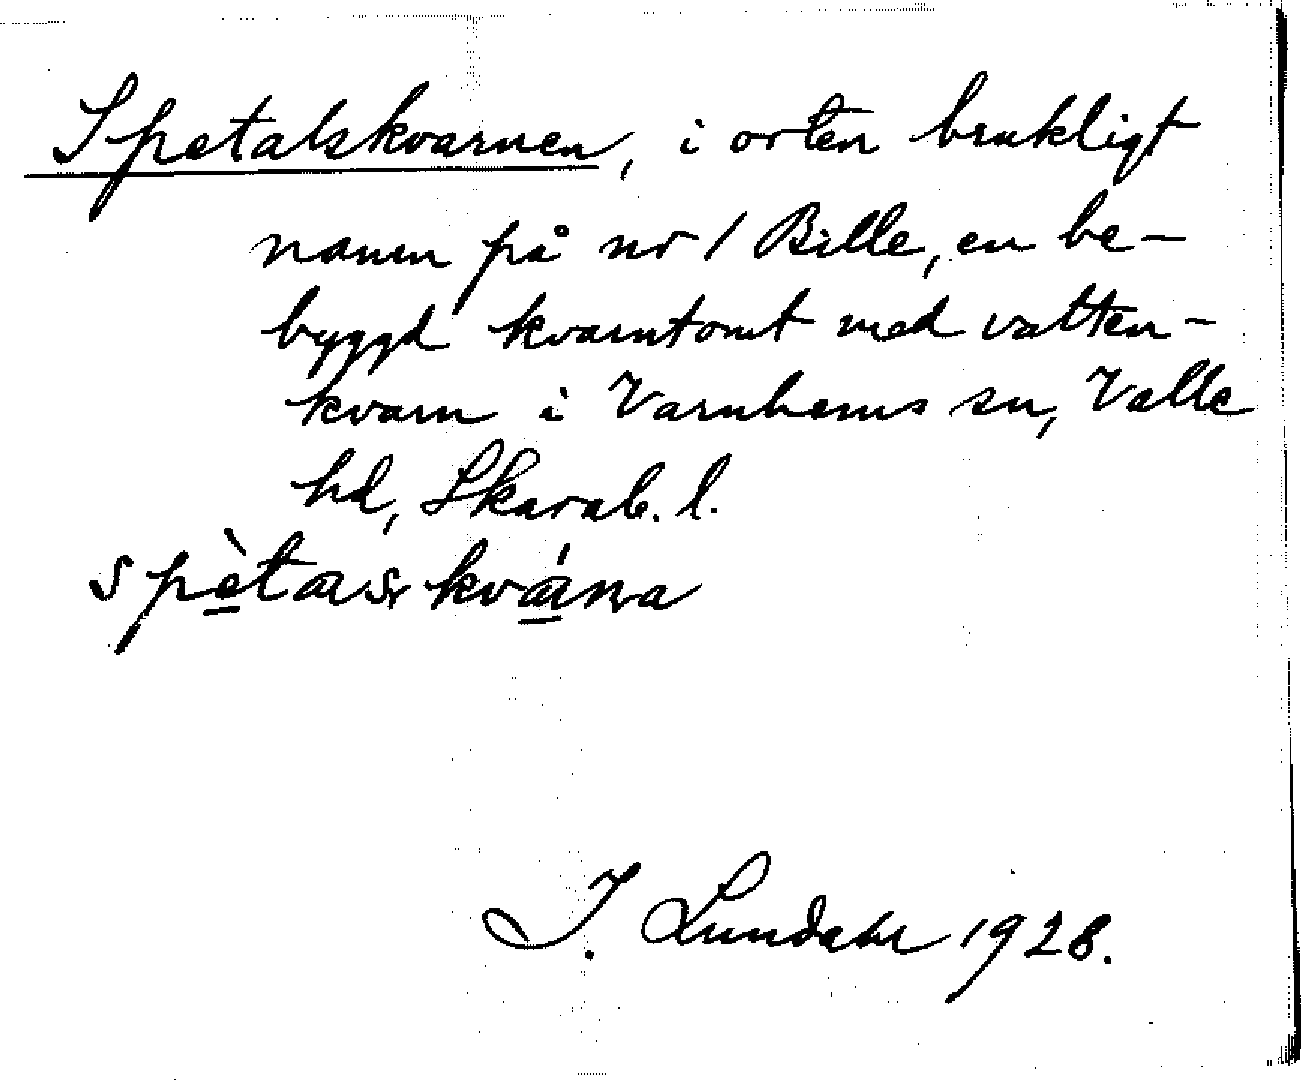 Spetalskvarnen, i orten brukligt
namn på nr 1 Bille, en be-
byggd kvarntomt med vatten-
kvarn i Varnhems sn, Valle
hd, Skarab. l.
spètaskváṇa
J. Lundahl 1928.